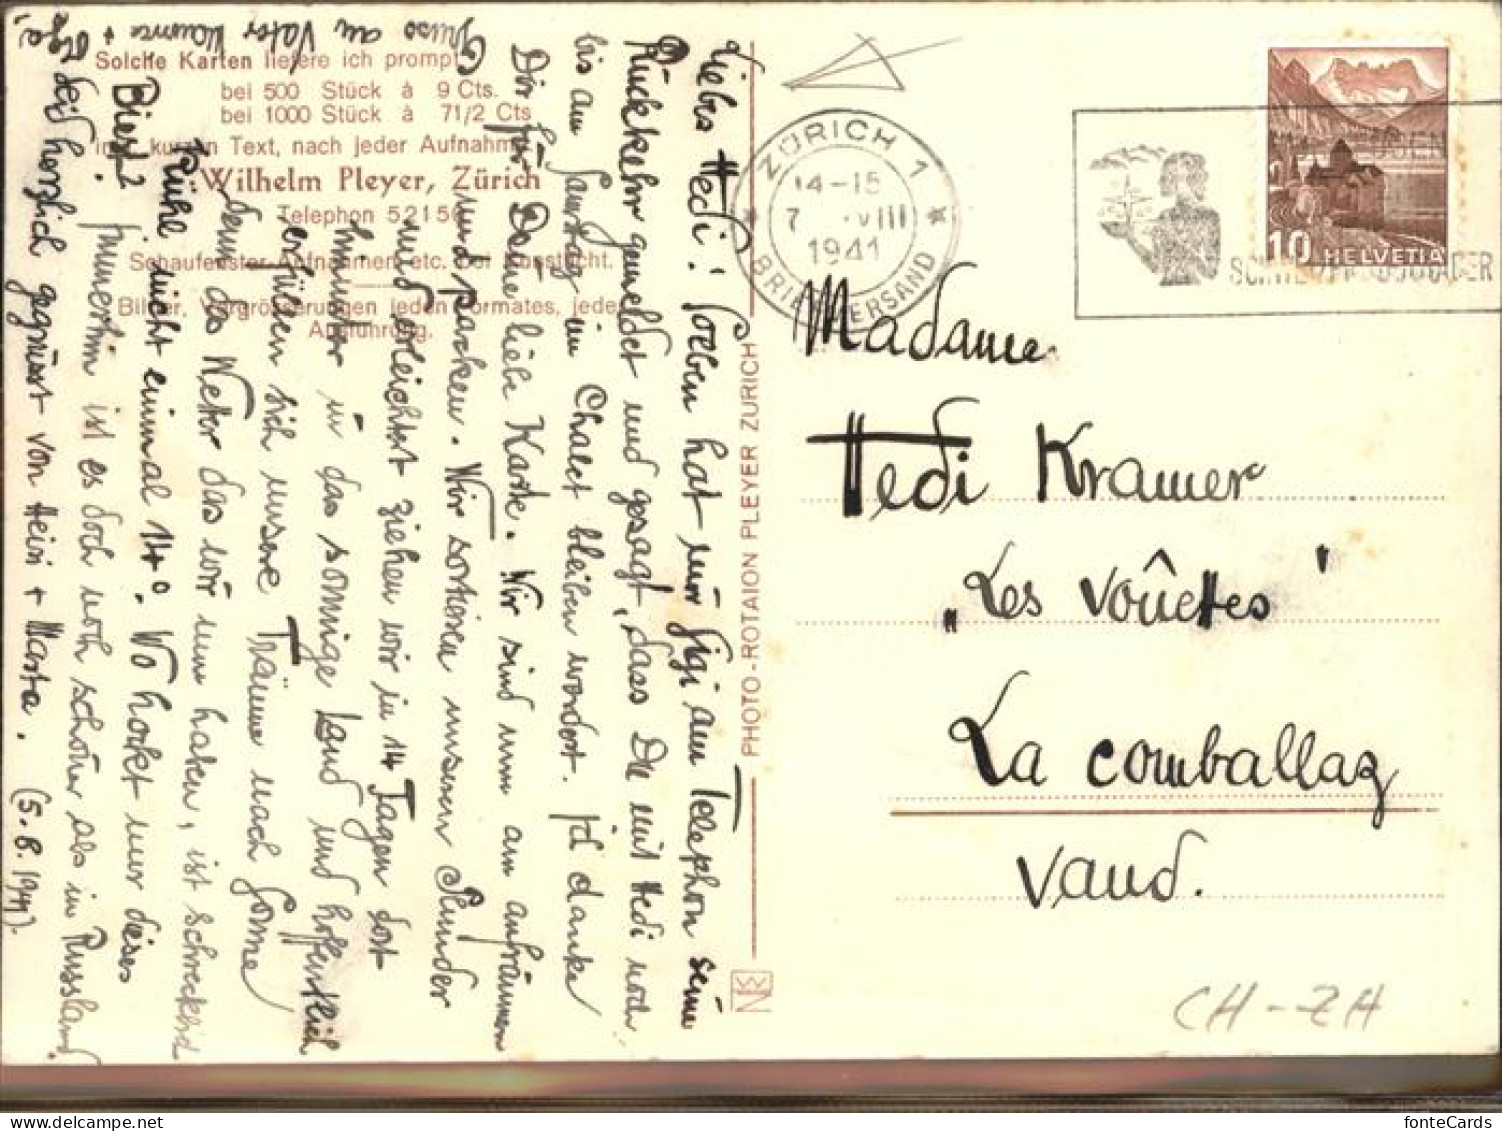 Liebs Hedi! Soeben hat mir Sigi am Telephon seine
Rückkehr gemeldet und gesagt, dass Du mit Hedi noch
bis am Samstag im Chalet bleiben werdet. Ich danke
Dir für Deine liebe Karte. Wir sind nun am aufräumen
und packen. Wir sortieren unseren Plunder
und erleichtert ziehen wir in 14 Tagen dort
hinunter in das sonnige Land und hoffentlich
erfüllen sich unsere Träume nach Sonne
denn das Wetter das wir nun haben, ist schrecklich
kühl nicht einmal 14°. Wo hockt nur dieses
Biest? Immerhin ist es doch noch schöner als in Russland.
Seid herzlich gegrüsst von Heiri + Marta. (5.8.1941).
Gruss an Vater +
Solche Karten liefere ich prompt
bei 500 Stück à 9 Cts.
bei 1000 Stück à 71/2 Cts
inkl. kurzen Text, nach jeder Aufnahme
Wilhelm Pleyer, Zürich
Telephon 52156
Schaufenster-Aufnahmen etc. bei
Bilder, Vergrösserungen jeden Formates, jede
Ausführung.
PHOTO-ROTAION PLEYER ZURICH
ZÜRICH 1
14-15
7. VIII
1941
BRIEFVERSAND
10 HELVETIA
Madame
Hedi Kramer
„Les Voûettes"
La Comballaz
Vaud.
CH-ZH
fonteCards
www.delcampe.net